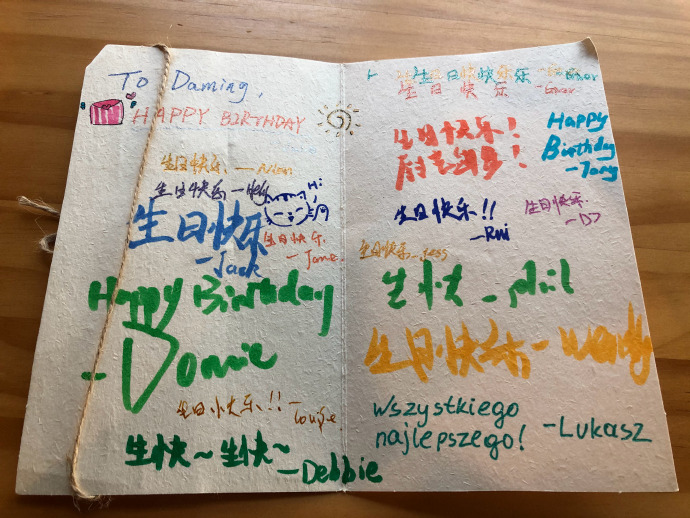 To Daming,
HAPPY BIRTHDAY
生日快乐 — Allen
生日快乐 —
Hi
生日快乐
- Jack
生日快乐
- Jane
Happy Birthday
- Donnie
生日快乐!! - Louise
生快~ 生快~
- Debbie
生日快乐
生日快乐
生日快乐!
Happy
Birthday
- Tony
生日快乐!!
- Rui
生日快乐
- DJ
生日快乐 - Jess
生快 - phil
生日快乐 - Wendy
Wszystkiego
najlepszego! - Lukasz